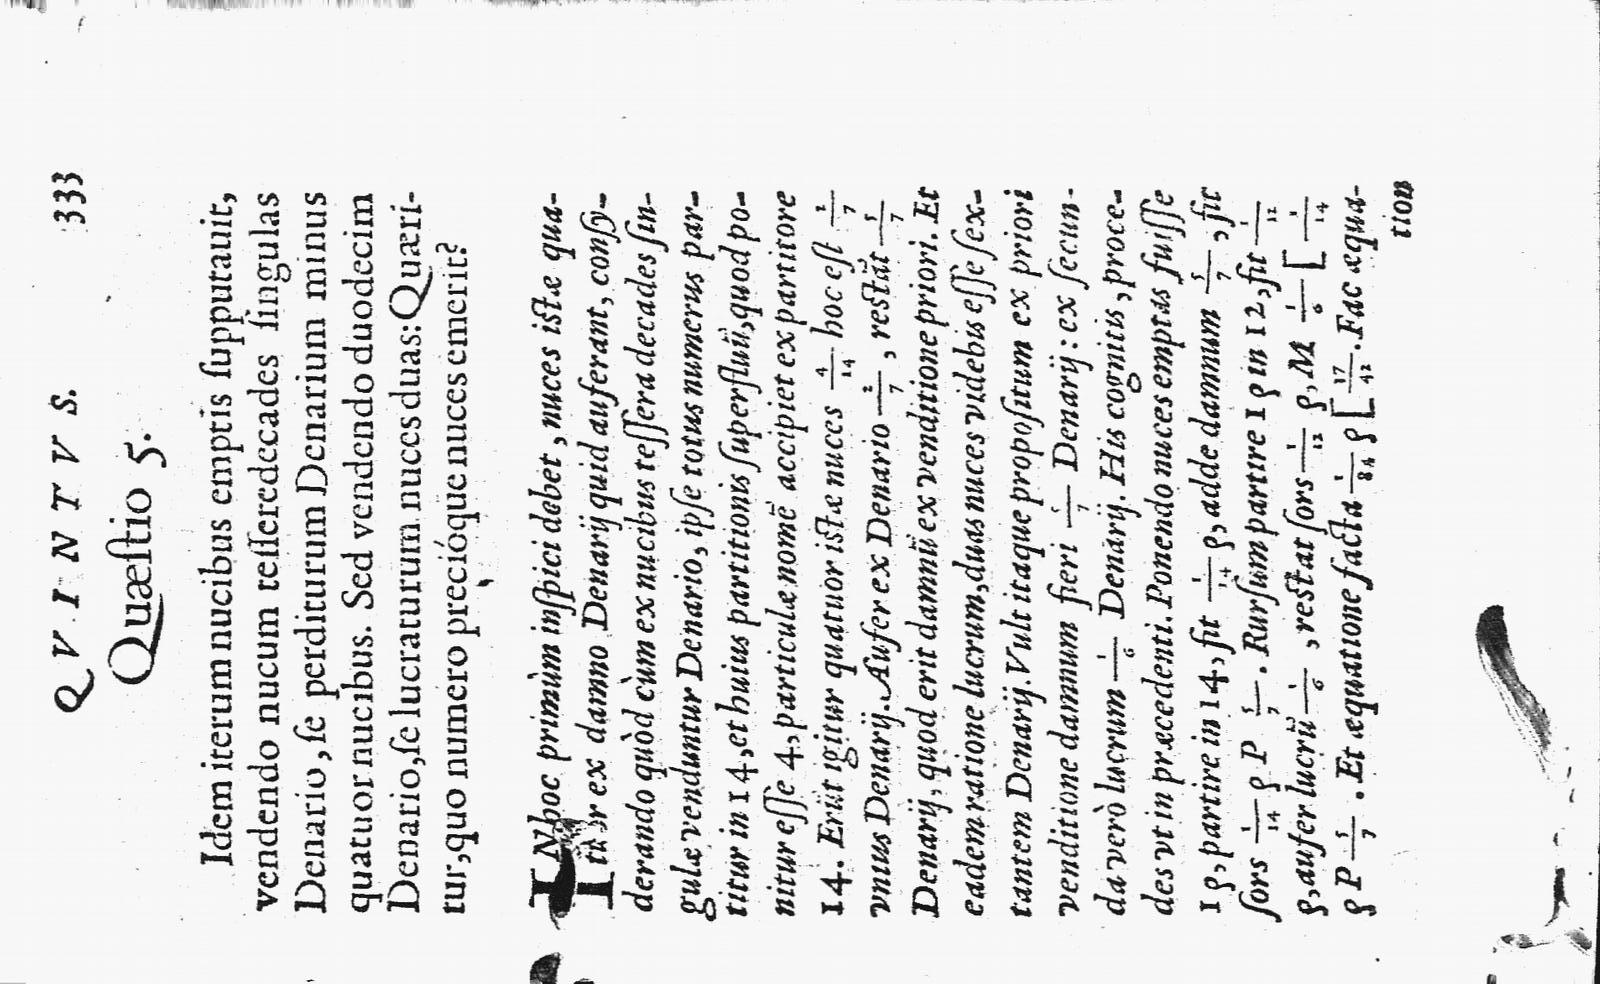 QVINTVS. 333
Quæſtio 5.
Idem iterum nucibus emptis ſupputauit,
vendendo nucum teſſeredecades ſingulas
Denario, ſe perditurum Denarium minus
quatuor nucibus. Sed vendendo duodecim
Denario, ſe lucraturum nuces duas: Quæri-
tur, quo numero precióque nuces emerit?
IN hoc primùm inſpici debet, nuces iſtæ qua-
tuor ex damno Denarij quid auferant, conſy-
derando quòd cùm ex nucibus teſſera decades ſin-
gulæ venduntur Denario, ipſe totus numerus par-
titur in 14, et huius partitionis ſuperfluũ, quod po-
nitur eſſe 4, particulæ nomẽ accipiet ex partitore
14. Erũt igitur quatuor iſtæ nuces 4/14 hoc eſt 2/7
vnius Denarij. Aufer ex Denario 2/7, reſtãt 5/7
Denarij, quod erit damnũ ex venditione priori. Et
eadem ratione lucrum, duas nuces videbis eſſe ſex-
tantem Denarij. Vult itaque propoſitum ex priori
venditione damnum fieri 5/7 Denarij: ex ſecun-
da verò lucrum 1/6 Denarij. His cognitis, proce-
des vt in præcedenti. Ponendo nuces emptas fuiſſe
1 ρ, partire in 14, fit 1/14 ρ, adde damnum 5/7, fit
ſors 1/14 ρ P 5/7. Rurſum partire 1 ρ in 12, fit 1/12
ρ, aufer lucrũ 1/6, reſtat ſors 1/12 ρ, M 1/6 [ 1/14
ρ P 5/7. Et æquatione facta 1/84 ρ [ 37/42. Fac æqua-
tion